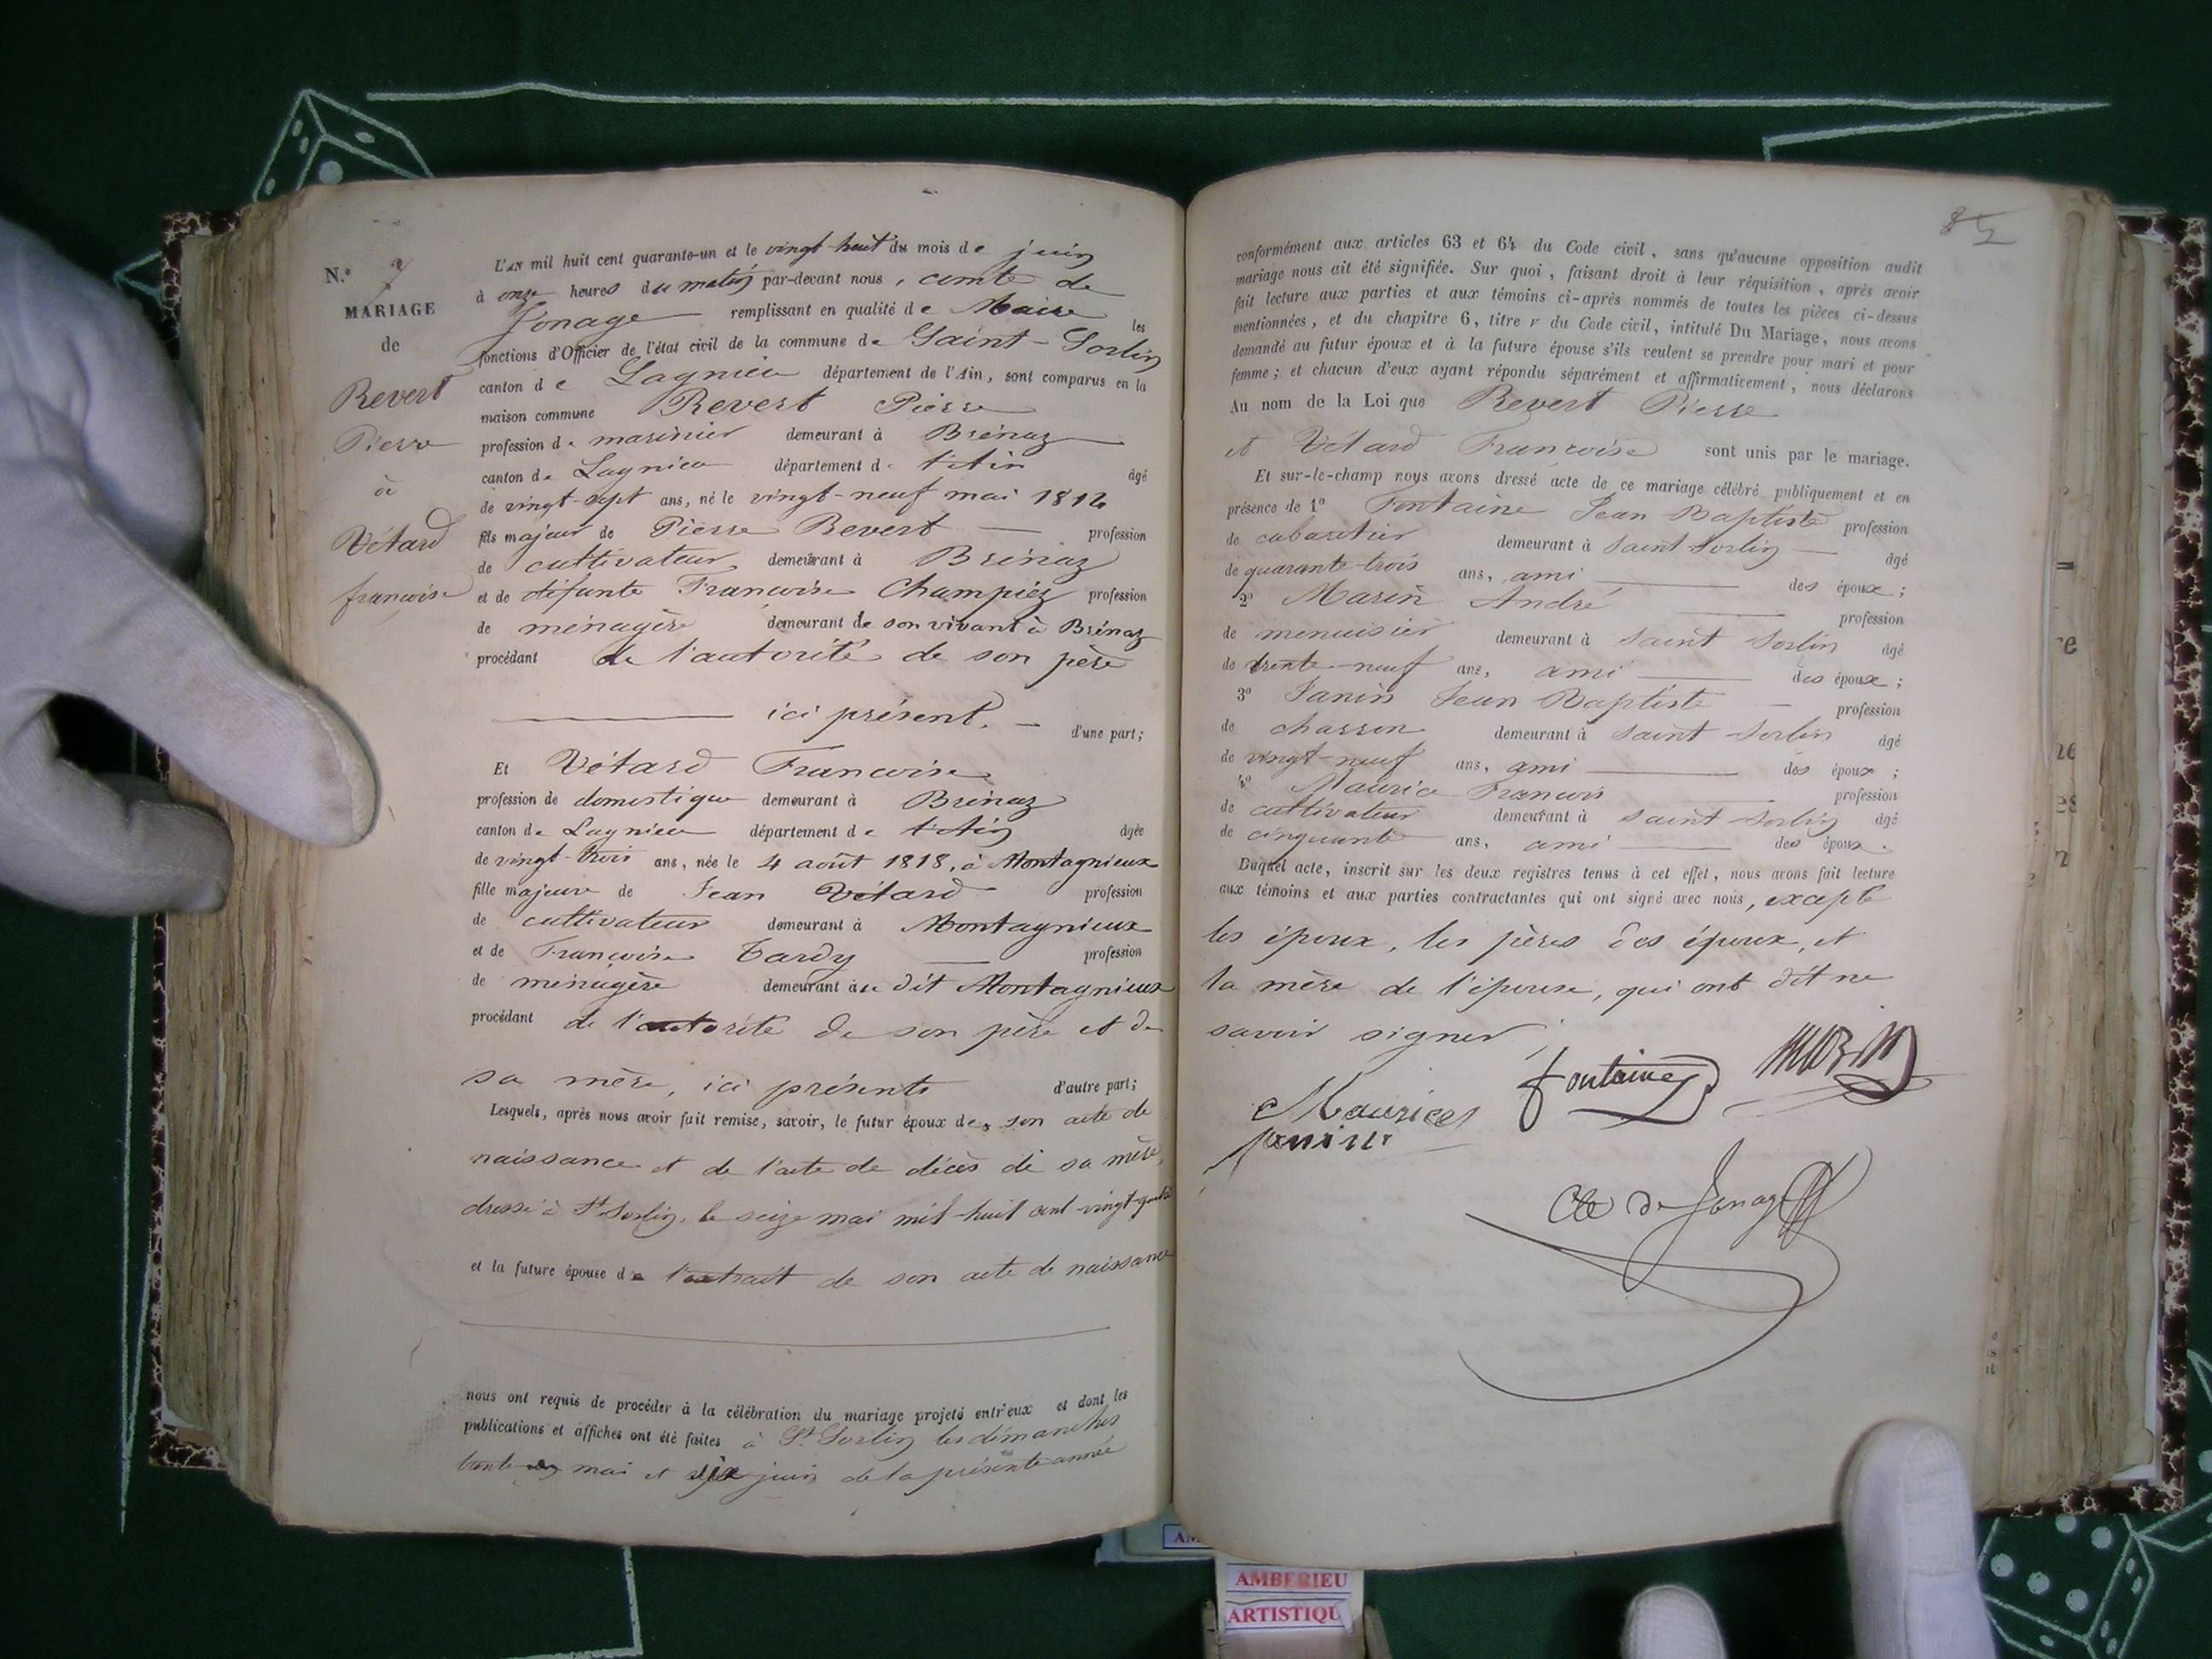 N.o 7
MARIAGE
de
Revert
Pierre
à
Vétard
françoise
L'an mil huit cent quarante-un et le vingt-huit du mois de juin
à onze heures du matin par-devant nous, comte de
Jonage remplissant en qualité de Maire les
fonctions d'Officier de l'état civil de la commune de Saint-Sorlin
canton de Lagnieu département de l'Ain, sont comparus en la
maison commune Revert Pierre
profession de marinier demeurant à Brénaz
canton de Lagnieu département de l'Ain âgé
de vingt-sept ans, né le vingt-neuf mai
fils majeur de Pierre Revert profession
de cultivateur demeurant à Brénaz
et de défunte Françoise Champiez profession
de ménagère demeurant de son vivant à Brénaz
procédant de l'autorité de son père
ici présent. d'une part;
Et Vétard Françoise
profession de domestique demeurant à Brénaz
canton de Lagnieu département de l'Ain âgée
de vingt-trois ans, née le 4 août 1818, à Montagnieux
fille majeure de Jean Vétard profession
de cultivateur demeurant à Montagnieux
et de Françoise Tardy profession
de ménagère demeurant au dit Montagnieux
procédant de l'autorité de son père et de
sa mère, ici présents d'autre part;
Lesquels, après nous avoir fait remise, savoir, le futur époux de son acte de
naissance et de l'acte de décès de sa mère,
dressé à St Sorlin, le seize mai mil huit cent vingt-quatre
et la future épouse de l'extrait de son acte de naissance
nous ont requis de procéder à la célébration du mariage projeté entr'eux et dont les
publications et affiches ont été faites à St. Sorlin les dimanches
trente mai et six juin de la présente année
85
conformément aux articles 63 et 64 du Code civil, sans qu'aucune opposition audit
mariage nous ait été signifiée. Sur quoi, faisant droit à leur réquisition, après avoir
fait lecture aux parties et aux témoins ci-après nommés de toutes les pièces ci-dessus
mentionnées, et du chapitre 6, titre v du Code civil, intitulé Du Mariage, nous avons
demandé au futur époux et à la future épouse s'ils veulent se prendre pour mari et pour
femme; et chacun d'eux ayant répondu séparément et affirmativement, nous déclarons
Au nom de la Loi que Revert Pierre
et Vétard Françoise sont unis par le mariage.
Et sur-le-champ nous avons dressé acte de ce mariage célébré publiquement et en
présence de 1o Fontaine Jean Baptiste profession
de cabaretier demeurant à Saint-Sorlin âgé
de quarante-trois ans, ami des époux;
2o Marin André profession
de menuisier demeurant à Saint Sorlin âgé
de trente-neuf ans, ami des époux;
3o Janin Jean Baptiste profession
de charron demeurant à Saint-Sorlin âgé
de vingt-neuf ans, ami des époux;
4o Maurice François profession
de cultivateur demeurant à Saint-Sorlin âgé
de cinquante ans, ami des époux.
Duquel acte, inscrit sur les deux registres tenus à cet effet, nous avons fait lecture
aux témoins et aux parties contractantes qui ont signé avec nous, excepté
les époux, les pères des époux, et
la mère de l'épouse, qui ont dit ne
savoir signer.
Fontaine
Marin
Maurice
janin
Cte de Jonage
AMBERIEU
ARTISTIQU